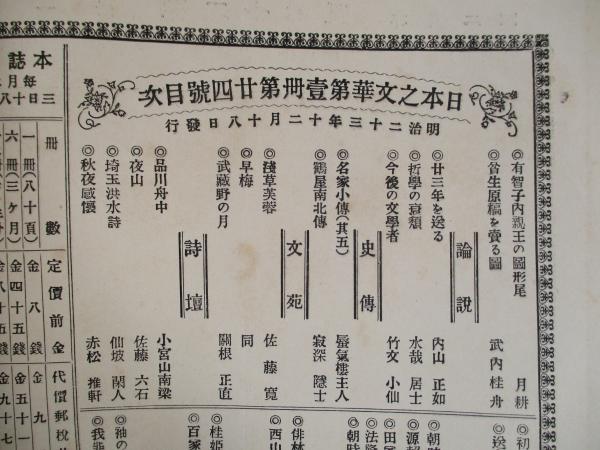 日本之文華第壹冊第廿四號目次
明治二十三年十二月十八日發行
◎有智子内親王の圖形尾 月耕
◎貧生原稿を賣る圖 武内桂舟
論說
◎廿三年を送る 内山正如
◎哲學の衰頽 水哉居士
◎今後の文學者 竹文小仙
史傳
◎名家小傳(其五) 蜃氣樓主人
◎鶴屋南北傳 寂深隱士
文苑
◎淺草芙蓉 佐藤寬
◎早梅 同
◎武藏野の月 關根正直
詩壇
◎品川舟中 小宮山南梁
◎夜山 佐藤六石
◎埼玉洪水詩 仙坡閑人
◎秋夜感懷 赤松推軒
◎初
◎送
◎朝
◎源
◎田
◎法
◎朝時
◎俳
◎西山
◎桂姫
◎百家
◎袖の
◎我
本誌
每月
三日十八
冊數 定價前金 代價郵稅
一冊(八十頁) 金八錢 金九
六冊(三ヶ月) 金四十五錢 金五十一
金八十五錢 金九十七